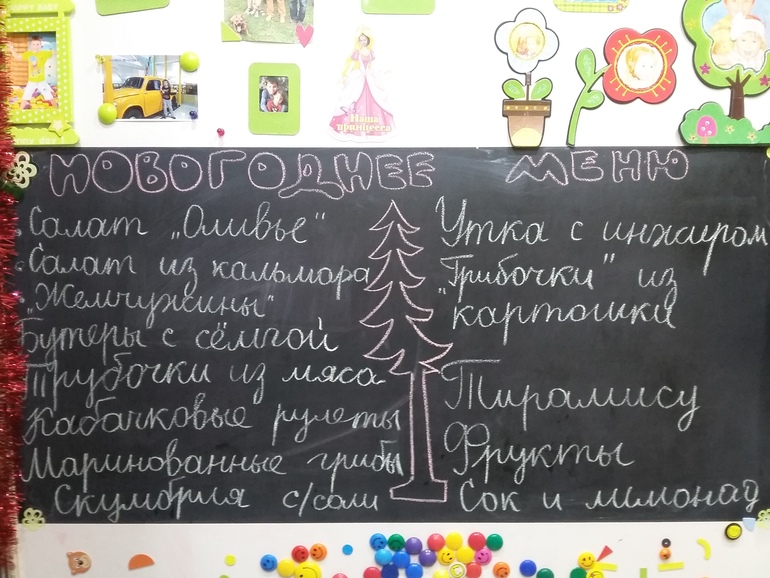 Наша
принцесса
НОВОГОДНЕЕ МЕНЮ
Салат „Оливье"
Салат из кальмара
„Жемчужины"
Бутеры с сёмгой
Трубочки из мяса
Кабачковые рулеты
Маринованные грибы
Скумбрия с/соли
Утка с инжиром
„Грибочки" из
картошки
Тирамису
Фрукты
Сок и лимонад